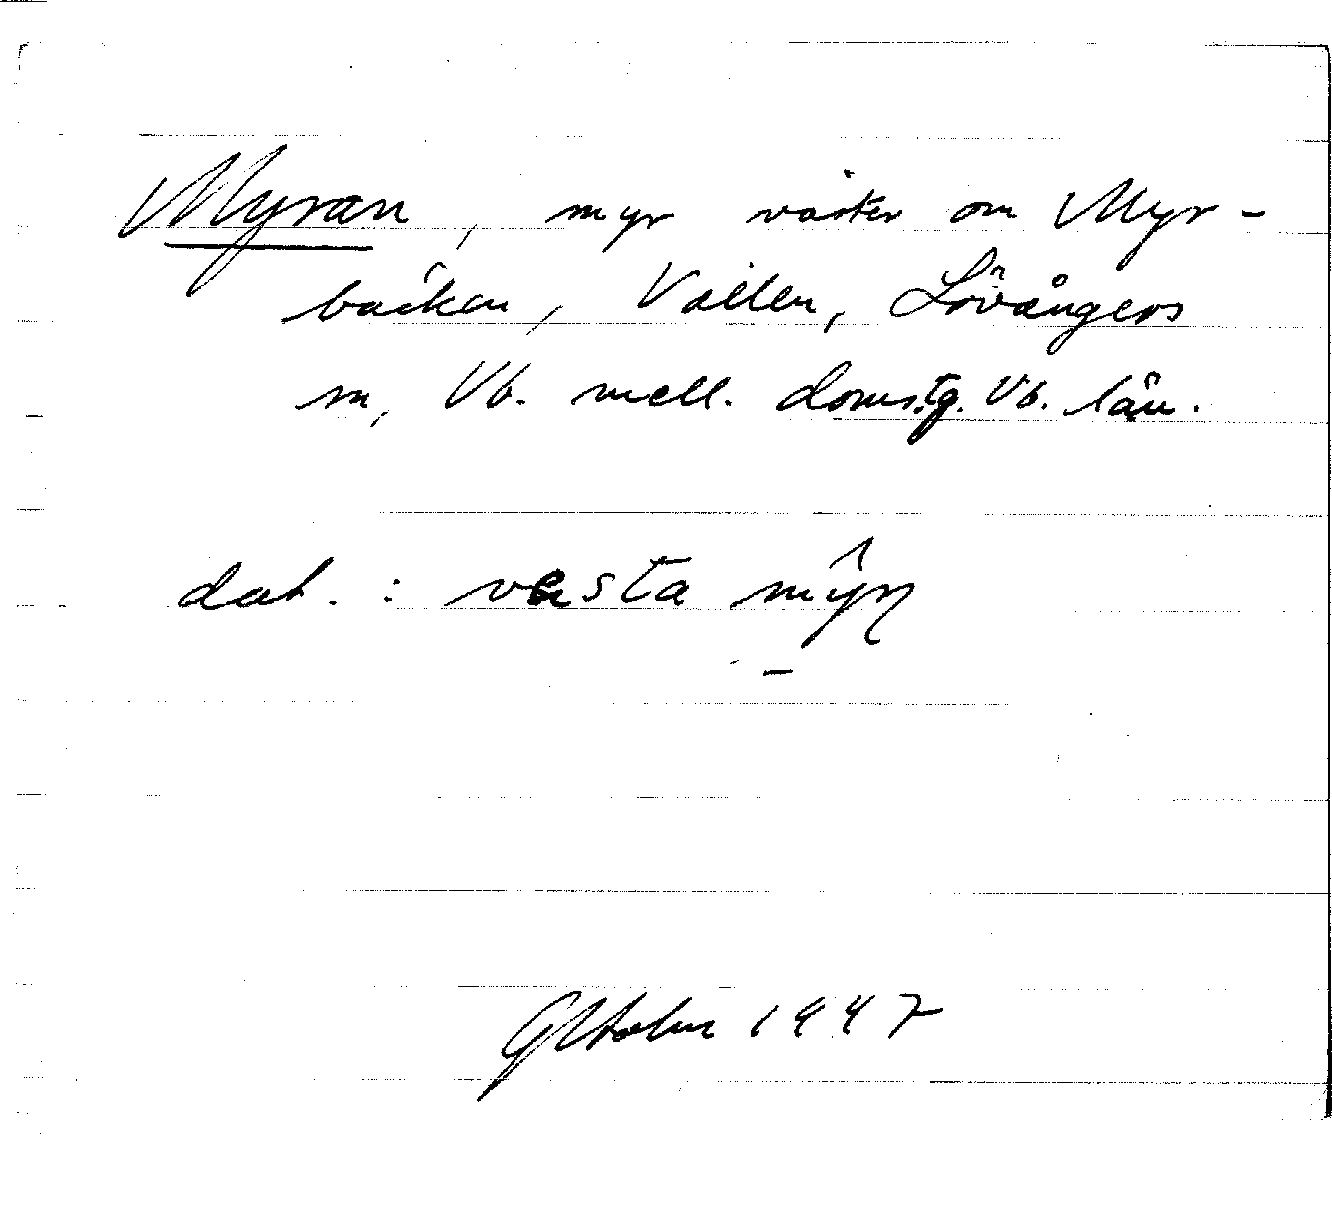 Myran, myr väster om Myr-
bäcken, Vallen, Lövångers
sn, Vb. mell. doms.tg. Vb. län.
dat. : vesta mŷrn
G Holm 1947